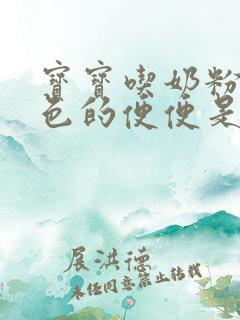 寶寶喫奶粉
色的便便是
展洪德
未经同意禁止转载